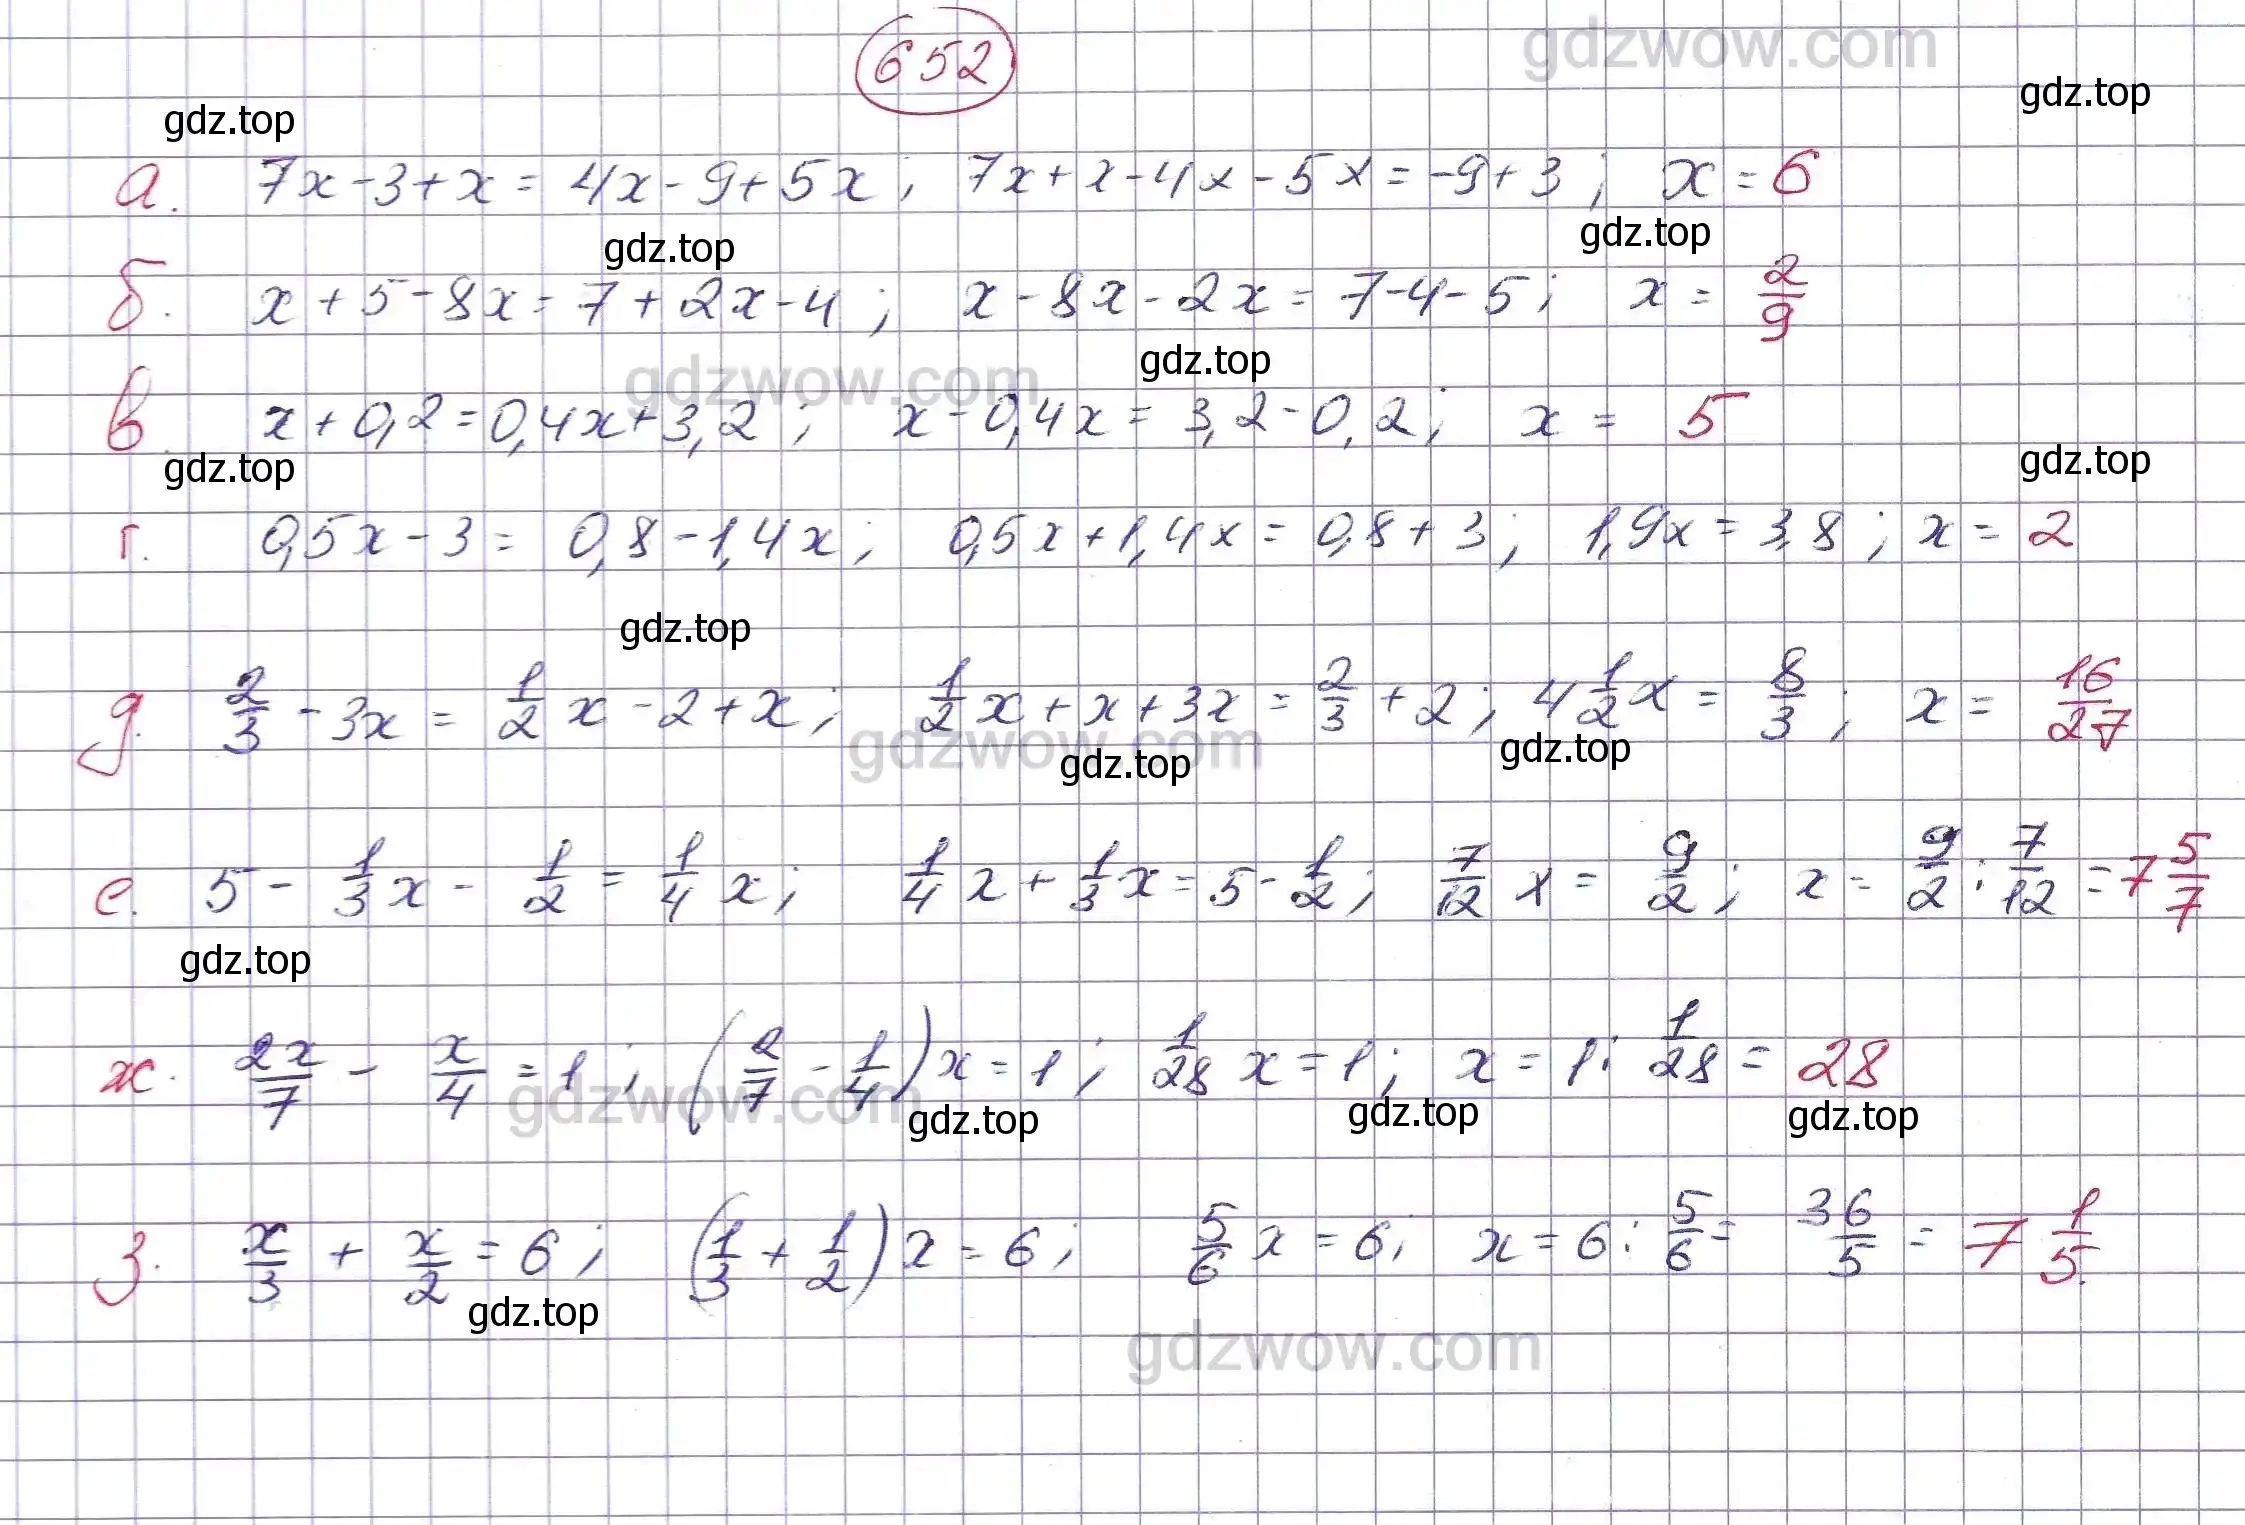 652
gdzwow.com
gdz.top
gdz.top
а. 7x-3+x = 4x-9+5x; 7x+x-4x-5x=-9+3; x=6
gdz.top
gdz.top
б. x+5-8x=7+2x-4; x-8x-2x=7-4-5; x=2/9
gdzwow.com
gdz.top
в. x+0,2=0,4x+3,2; x-0,4x=3,2-0,2; x=5
gdz.top
gdz.top
г. 0,5x-3=0,8-1,4x; 0,5x+1,4x=0,8+3; 1,9x=3,8; x=2
gdz.top
д. 2/3-3x=1/2x-2+x; 1/2x+x+3x=2/3+2; 4 1/2x=8/3; x=16/27
gdzwow.com
gdz.top
gdz.top
е. 5-1/3x-1/2=1/4x; 1/4x+1/3x=5-1/2; 7/12x=9/2; x=9/2:7/12=7 5/7
gdz.top
ж. 2x/7-x/4=1; (2/7-1/4)x=1; 1/28x=1; x=1:1/28=28
gdzwow.com
gdz.top
gdz.top
gdz.top
з. x/3+x/2=6; (1/3+1/2)x=6; 5/6x=6; x=6:5/6=36/5=7 1/5.
gdz.top
gdzwow.com